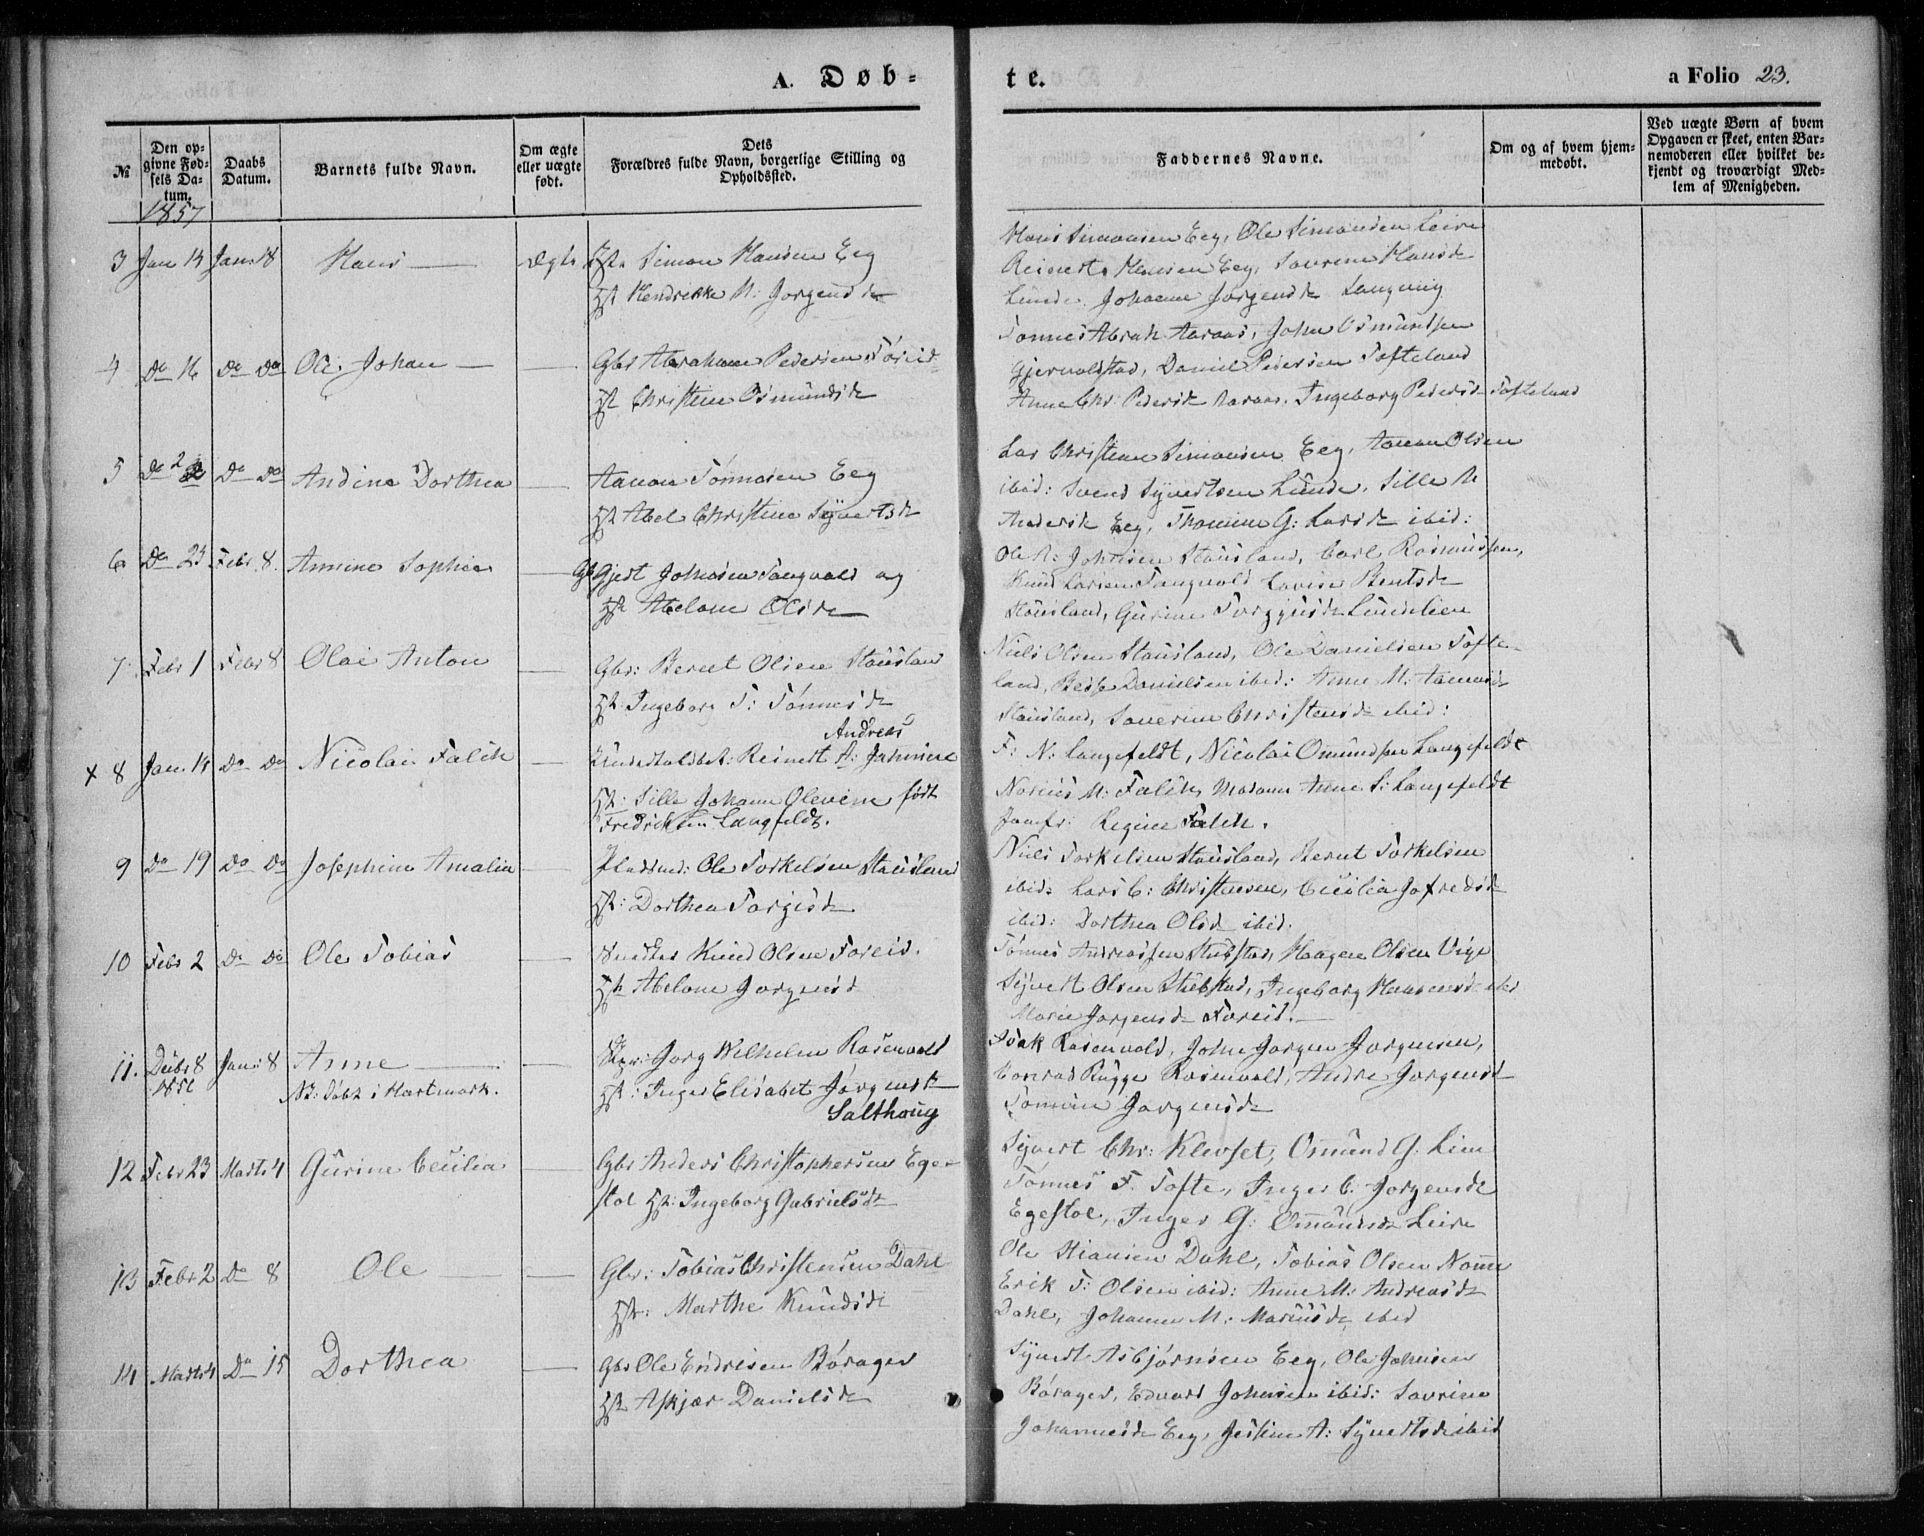 A. Døb-
te.
a Folio 23.
№
Den op-
givne Fød-
sels Da-
tum.
Daabs
Datum.
Barnets fulde Navn.
Om ægte
eller uægte
født.
Dets
Forældres fulde Navn, borgerlige Stilling og
Opholdssted.
Faddernes Navne.
Om og af hvem hjem-
medøbt.
Ved uægte Børn af hvem
Opgaven er skeet, enten Bar-
nemoderen eller hvilket be-
kjendt og troværdigt Med-
lem af Menigheden.
1857
3 Jan 14 Jan 18 Hans ægte Simon Hansen Eeg
Hendrikke M: Jørgensd
Hans Simonsen Eeg, Ole Simonsen Leire
Reinert Hansen Eeg, Savrine Hansd
Lunde, Johanne Jørgensd Langmyr
4 Do 16 Do Do Ole Johan Gbr Abraham Pedersen Foreid
Christine Osmundsd
Tønnes Abrah Aaraas, John Osmundsen
Gjervoldstad, Daniel Pedersen Tofteland
Anne Chr: Pedersd Aaraas, Ingeborg Pedersd Tofteland
5 Do 2 Do Do Andine Dorthea Aanon Tønnesen Eeg
Abel Christine Syvertsd
Lars Christian Simonsen Eeg, Aanon Olsen
ibid: Svend Syvertsen Lunde, Sille M
Andersd Eeg, Thomine G: Larsd ibid:
6 Do 23 Febr. 8. Annine Sophie Gbr Gjert Johnsen Tangvald og
Abelone Olsd
Ole N: Johnsen Stausland, Carl Rasmussen,
Knud Larsen Tangvald Lovise Bentsd
Stausland, Gurine Torgjusd Lundelien
7 Febr 1 Febr 8 Olai Anton Gbr: Bernt Olsen Stausland
Ingeborg T: Tønnesd
Niels Olsen Stausland, Ole Danielsen Tofte-
land, Danielsen ibid: Anne M:
Stausland, Saverine Christensd ibid:
Andreas
x 8 Jan 14 Do Do Nicolai Falch Reinert A: Jahnsen
Sille Johanne Olevine født
Fredriksen Langfeldt.
F: N: Langefeldt, Nicolai Omundsen Langefeldt
M: Falch, Madam Anne S: Langefeldt
Jomfr: Regine Falch.
9 Do 19 Do Do Josephine Amalia Pladsmd: Ole Torkelsen Stausland
Dorthea Torgisd
Niels Torkelsen Stausland, Bernt Torkelsen
ibid: Lars C: Christensen, Cecilia Jofredsd
ibid: Dorthea Olsd ibid.
10 Febr 2 Do Do Ole Tobias Knud Olsen Foreid.
Abelone Jørgensd
Tønnes Andreassen Stubstad, Haagen Olsen Vige
Syvert Olsen Stubstad, Ingeborg Hansensd ibd
Marie Jørgensd Foreid.
11. Debr 8 Jan: 8 Anne Jørg Wilhelm Rosenvold
1856
NB: Døbt i Hartmark. Inger Elisabet Jørgensd
Salthoug
Isak Rosenvold, John Jørgen Jørgensen,
Conrad Bugge Rosenvold, Andre Jørgensd
Tomine Jørgensd
12 Febr 23 Marts 4 Gurine Cecilia Gbr Anders Christophersen Ege-
stol Ingeborg Gabrielsd
Syvert Chr: Klevset, Omund G: Lien
Tønnes F. Tofte, Inger C. Jørgensd
Egestol, Inger G: Omundsd Leire
13 Febr 2 Do 8 Ole Gbr: Tobias Christensen Dahl
Marthe Knudsd
Ole Stiansen Dahl, Tobias Olsen Nome
Erik T: Olsen ibid: Anne M: Andreasd
Dahl, Johanne M: Mariusd ibid
14 Marts 4 Do 15 Dorthea Gbr Ole Endresen Børager
Askjær Danielsd
Syvert Asbjørnsen Eeg, Ole Johnsen
Børager, Edvard Johnsen ibid: Savrine
Johannesd Eeg, A: Syvertsd ibid